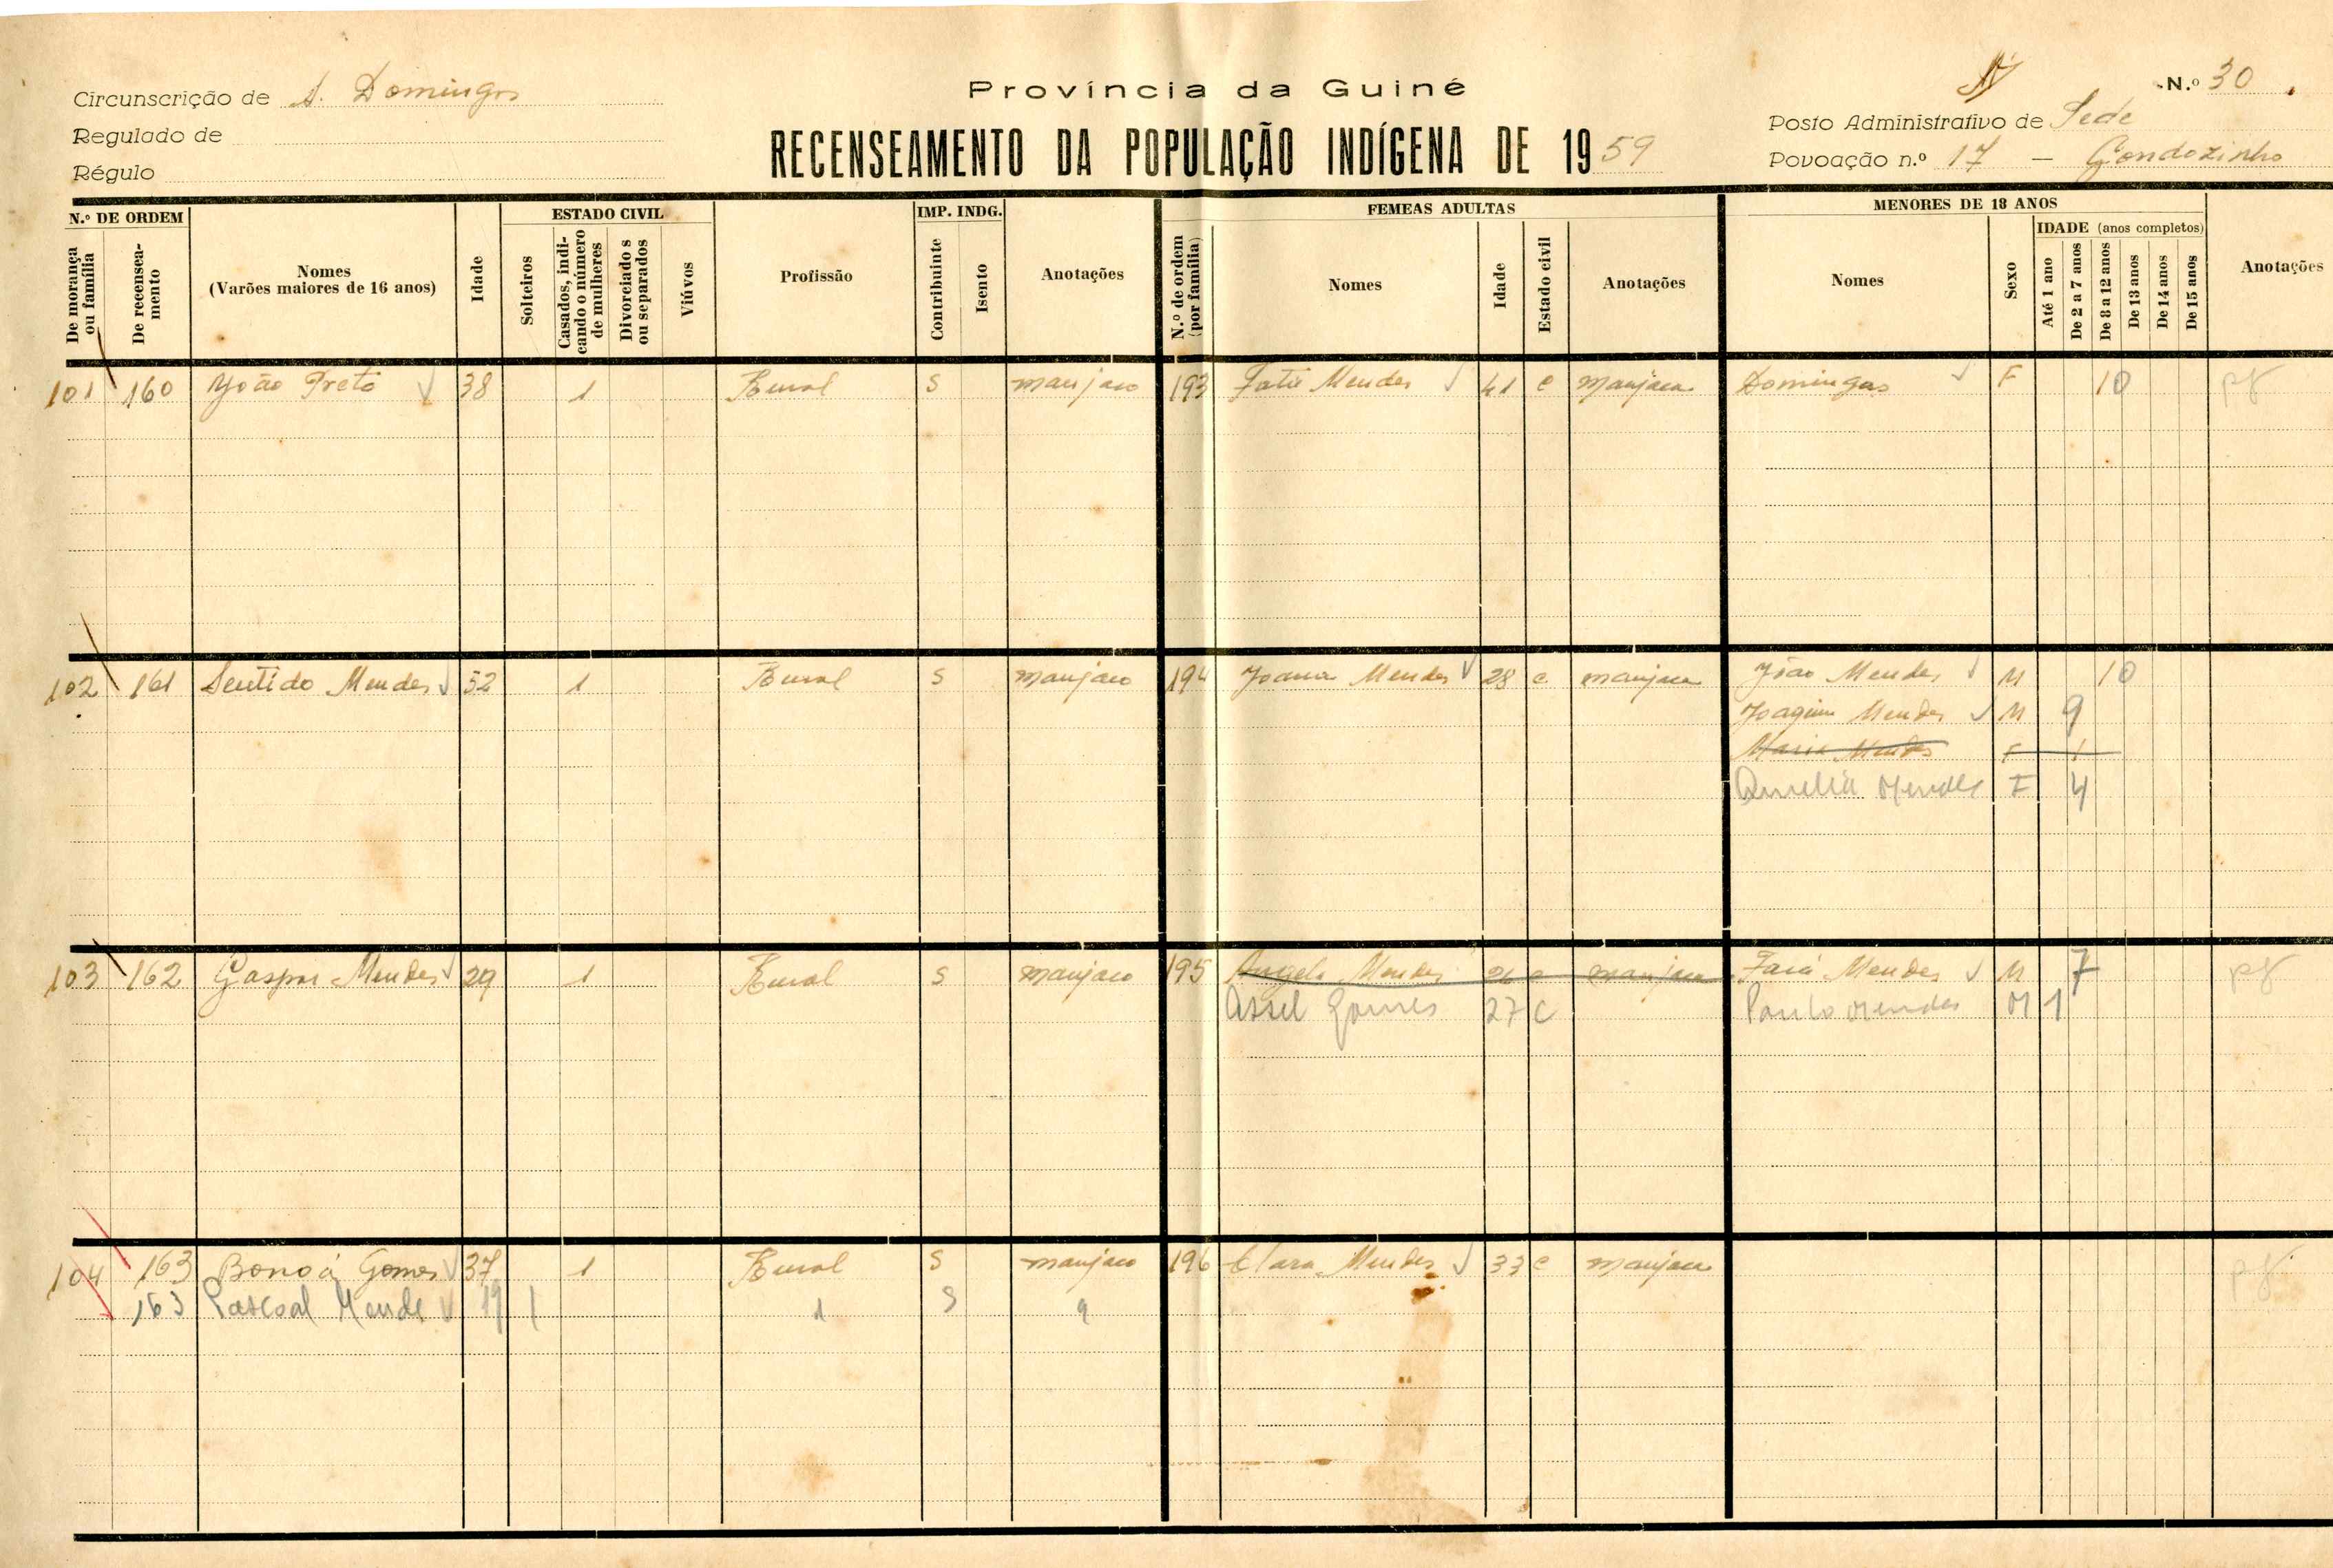 Província da Guiné
N.º 30
Circunscrição de S. Domingos
Regulado de
Régulo
RECENSEAMENTO DA POPULAÇÃO INDÍGENA DE 1959
Posto Administrativo de Sede
Povoação n.º 17 —
N.º DE ORDEM
De morança ou família
De recenseamento
Nomes
(Varões maiores de 16 anos)
Idade
ESTADO CIVIL
Solteiros
Casados, indicando o número de mulheres
Divorciados ou separados
Viúvos
Profissão
IMP. INDG.
Contribuinte
Isento
Anotações
FEMEAS ADULTAS
N.º de ordem (por família)
Nomes
Idade
Estado civil
Anotações
MENORES DE 18 ANOS
Nomes
Sexo
IDADE (anos completos)
Até 1 ano
De 2 a 7 anos
De 8 a 12 anos
De 13 anos
De 14 anos
De 15 anos
Anotações
101 160 João Preto 38 1 Rural S manjaco 193 Mendes 41 C manjaca Domingas F 10
102 161 Sentido Mendes 52 1 Rural S manjaco 194 Joana Mendes 28 C manjaca João Mendes M 10
Joaquim Mendes M 9
Maria Mendes F 1
Amelia Mendes F 4
103 162 Gaspar Mendes 29 1 Rural S manjaco 195 Angela Mendes 26 C manjaca Mendes M 7
Gomes 27 C Paulo Mendes M 1
104 163 Gomes 37 1 Rural S manjaco 196 Clara Mendes 33 C manjaca
163 Pascoal Mende 19 1 S